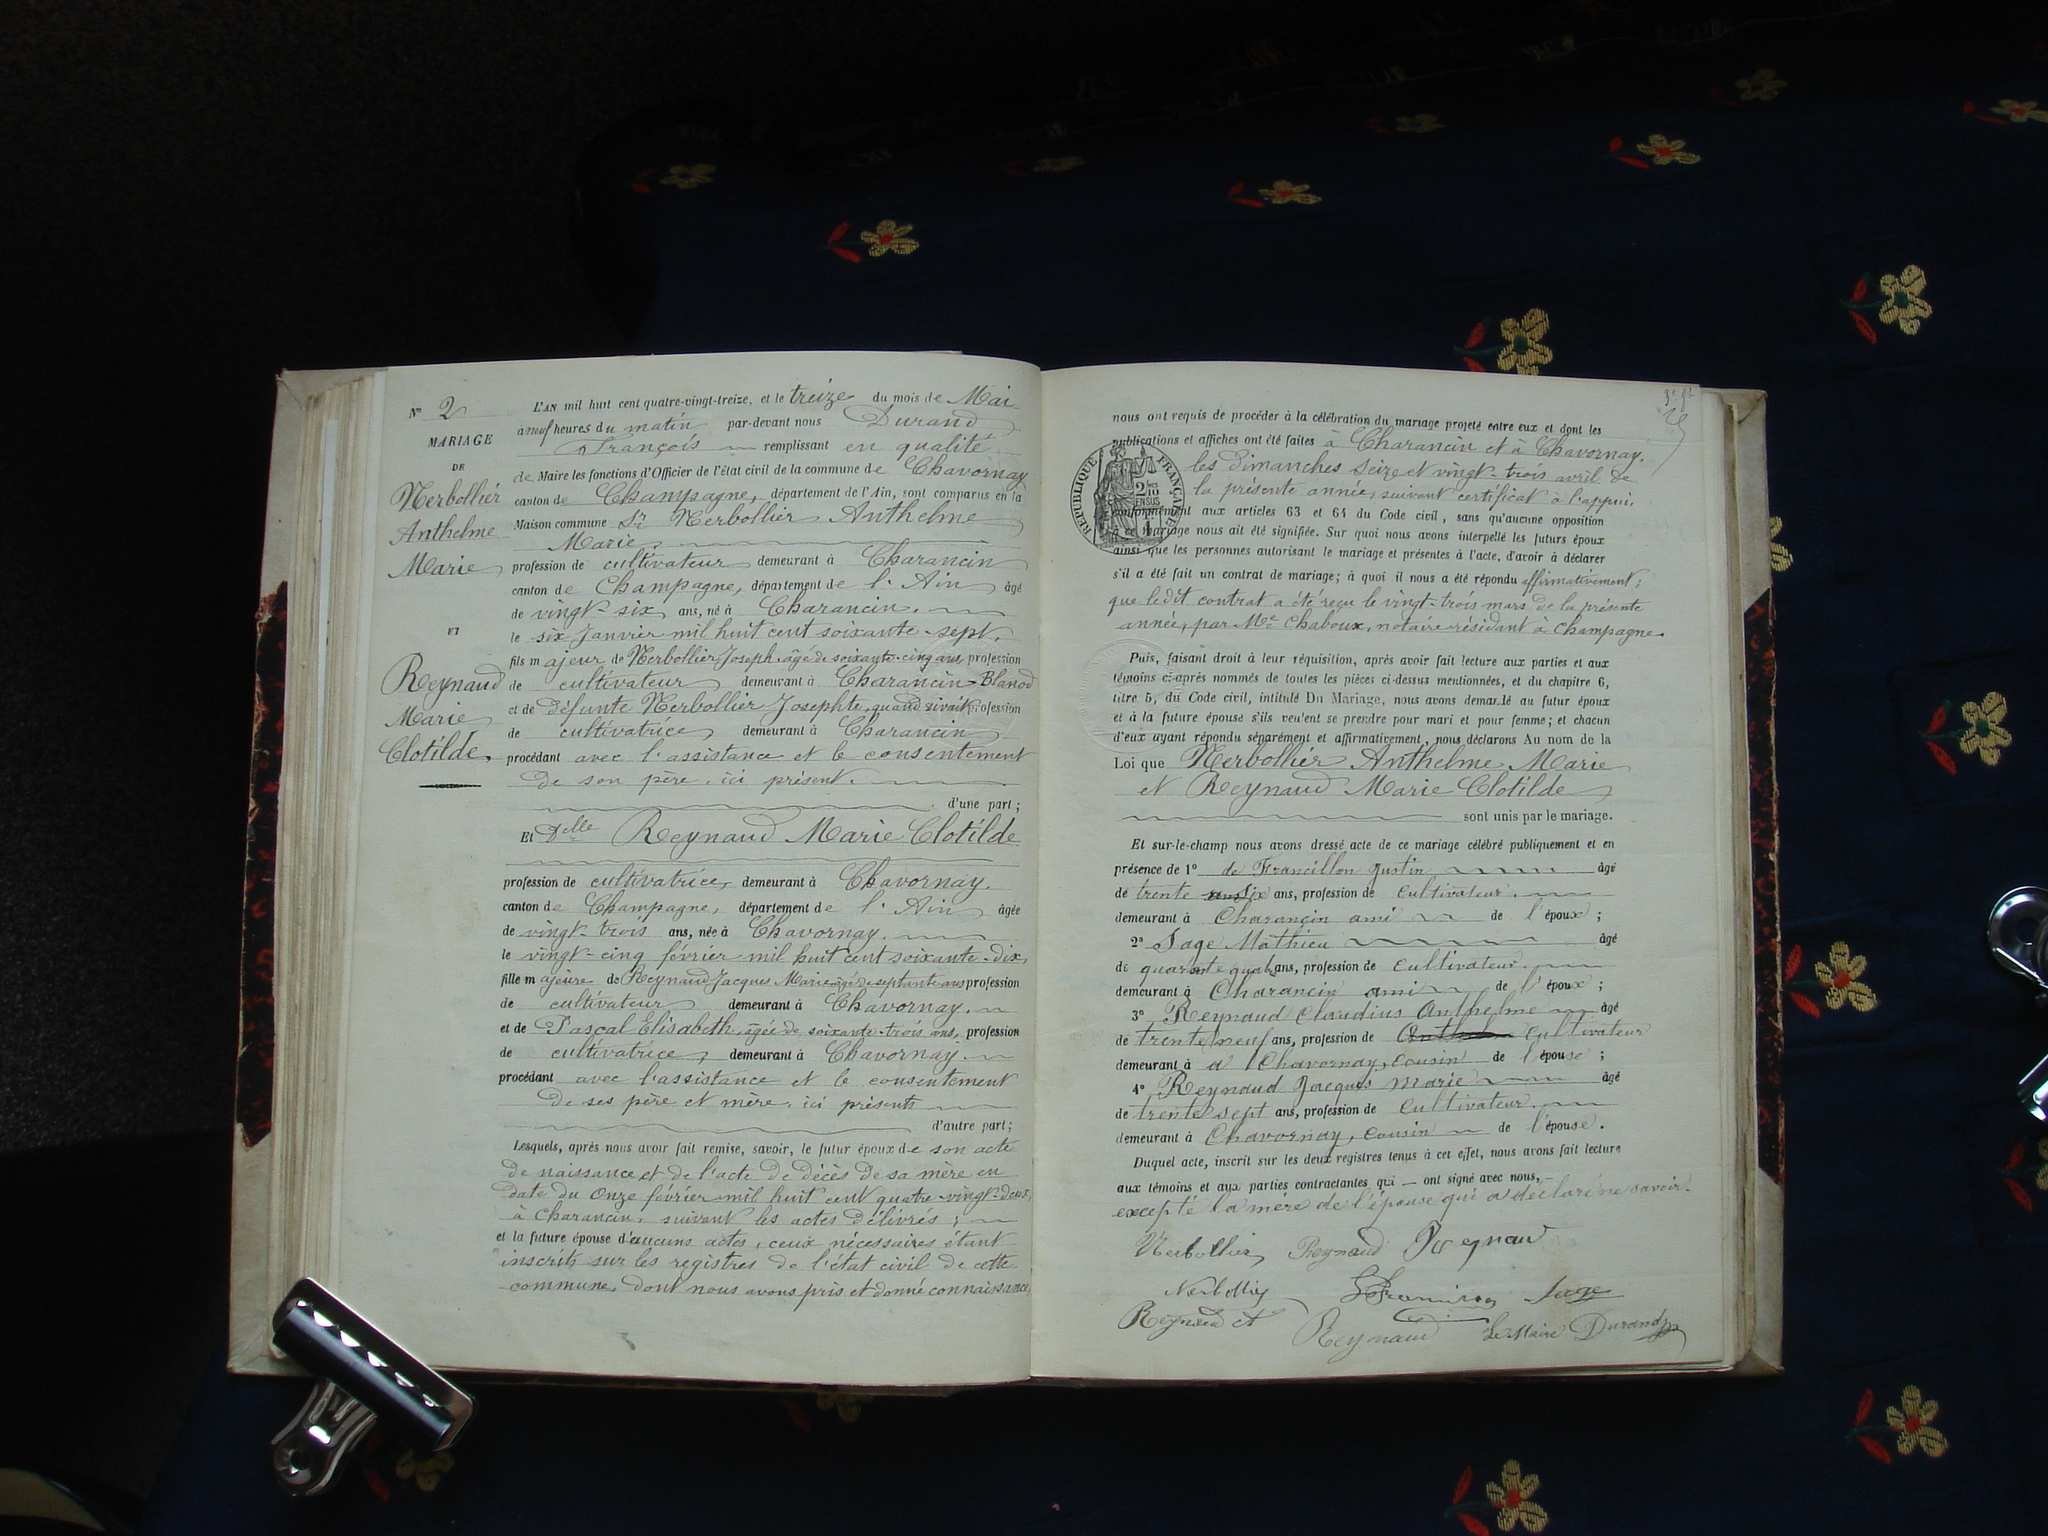 N° 2
MARIAGE
DE
Nerbollier
Anthelme
Marie
ET
Reynaud
Marie
Clotilde.
L'AN mil huit cent quatre-vingt-treize, et le treize du mois de Mai
à neuf heures du matin par-devant nous Durand
François remplissant en qualité
de Maire les fonctions d'Officier de l'état civil de la commune de Chavornay
canton de Champagne, département de l'Ain, sont comparus en la
Maison commune Sr Nerbollier Anthelme
Marie,
profession de cultivateur demeurant à Charancin
canton de Champagne, département de l'Ain âgé
de vingt-six ans, né à Charancin.
le six Janvier mil huit cent soixante-sept.
fils majeur de Nerbollier Joseph, âgé de soixante-cinq ans, profession
de cultivateur demeurant à Charancin Blanod
et de défunte Nerbollier Josephte, quand vivait profession
de cultivatrice, demeurant à Charancin
procédant avec l'assistance et le consentement
de son père, ici présent.
d'une part ;
Et Dlle Reynaud Marie Clotilde
profession de cultivatrice, demeurant à Chavornay.
canton de Champagne, département de l'Ain âgée
de vingt-trois ans, née à Chavornay.
le vingt-cinq février mil huit cent soixante-dix
fille majeure de Reynaud Jacques Marie âgé de septante ans profession
de cultivateur demeurant à Chavornay.
et de Pascal Elisabeth, âgée de soixante-trois ans, profession
de cultivatrice, demeurant à Chavornay.
procédant avec l'assistance et le consentement
de ses père et mère, ici présents
d'autre part ;
Lesquels, après nous avoir fait remise, savoir, le futur époux de son acte
de naissance et de l'acte de décès de sa mère en
date du onze février mil huit cent quatre-vingt-deux,
à Charancin, suivant les actes délivrés ;
et la future épouse d'aucuns actes, ceux nécessaires étant
inscrits sur les registres de l'état civil de cette
commune, dont nous avons pris et donné connaissance,
nous ont requis de procéder à la célébration du mariage projeté entre eux et dont les
publications et affiches ont été faites à Charancin et à Chavornay.
les dimanches seize et vingt-trois avril de
la présente année, suivant certificat à l'appui.
RÉPUBLIQUE FRANÇAISE
2/10 EN SUS
conformément aux articles 63 et 64 du Code civil, sans qu'aucune opposition
à ce mariage nous ait été signifiée. Sur quoi nous avons interpellé les futurs époux
ainsi que les personnes autorisant le mariage et présentes à l'acte, d'avoir à déclarer
s'il a été fait un contrat de mariage ; à quoi il nous a été répondu affirmativement ;
que ledit contrat a été reçu le vingt-trois mars de la présente
année, par Me Chaboux, notaire résidant à Champagne.
Puis, faisant droit à leur réquisition, après avoir fait lecture aux parties et aux
témoins ci-après nommés de toutes les pièces ci-dessus mentionnées, et du chapitre 6,
titre 5, du Code civil, intitulé Du Mariage, nous avons demandé au futur époux
et à la future épouse s'ils veulent se prendre pour mari et pour femme ; et chacun
d'eux ayant répondu séparément et affirmativement, nous déclarons Au nom de la
Loi que Nerbollier Anthelme Marie
et Reynaud Marie Clotilde
sont unis par le mariage.
Et sur-le-champ nous avons dressé acte de ce mariage célébré publiquement et en
présence de 1° de Francillon Justin âgé
de trente six ans, profession de cultivateur.
demeurant à Charancin ami de l'époux ;
2° Sage Mathieu âgé
de quarante quatre ans, profession de cultivateur.
demeurant à Charancin ami de l'époux ;
3° Reynaud Claudius Anthelme âgé
de trente neuf ans, profession de cultivateur
demeurant à a Chavornay, cousin de l'épouse ;
4° Reynaud Jacques Marie âgé
de trente sept ans, profession de cultivateur.
demeurant à Chavornay, cousin de l'épouse.
Duquel acte, inscrit sur les deux registres tenus à cet effet, nous avons fait lecture
aux témoins et aux parties contractantes qui — ont signé avec nous,
excepté la mère de l'épouse qui a déclaré ne savoir.
Nerbollier Reynaud Reynaud
Nerbollier Francillon Sage
Reynaud A Reynaud Le Maire Durand